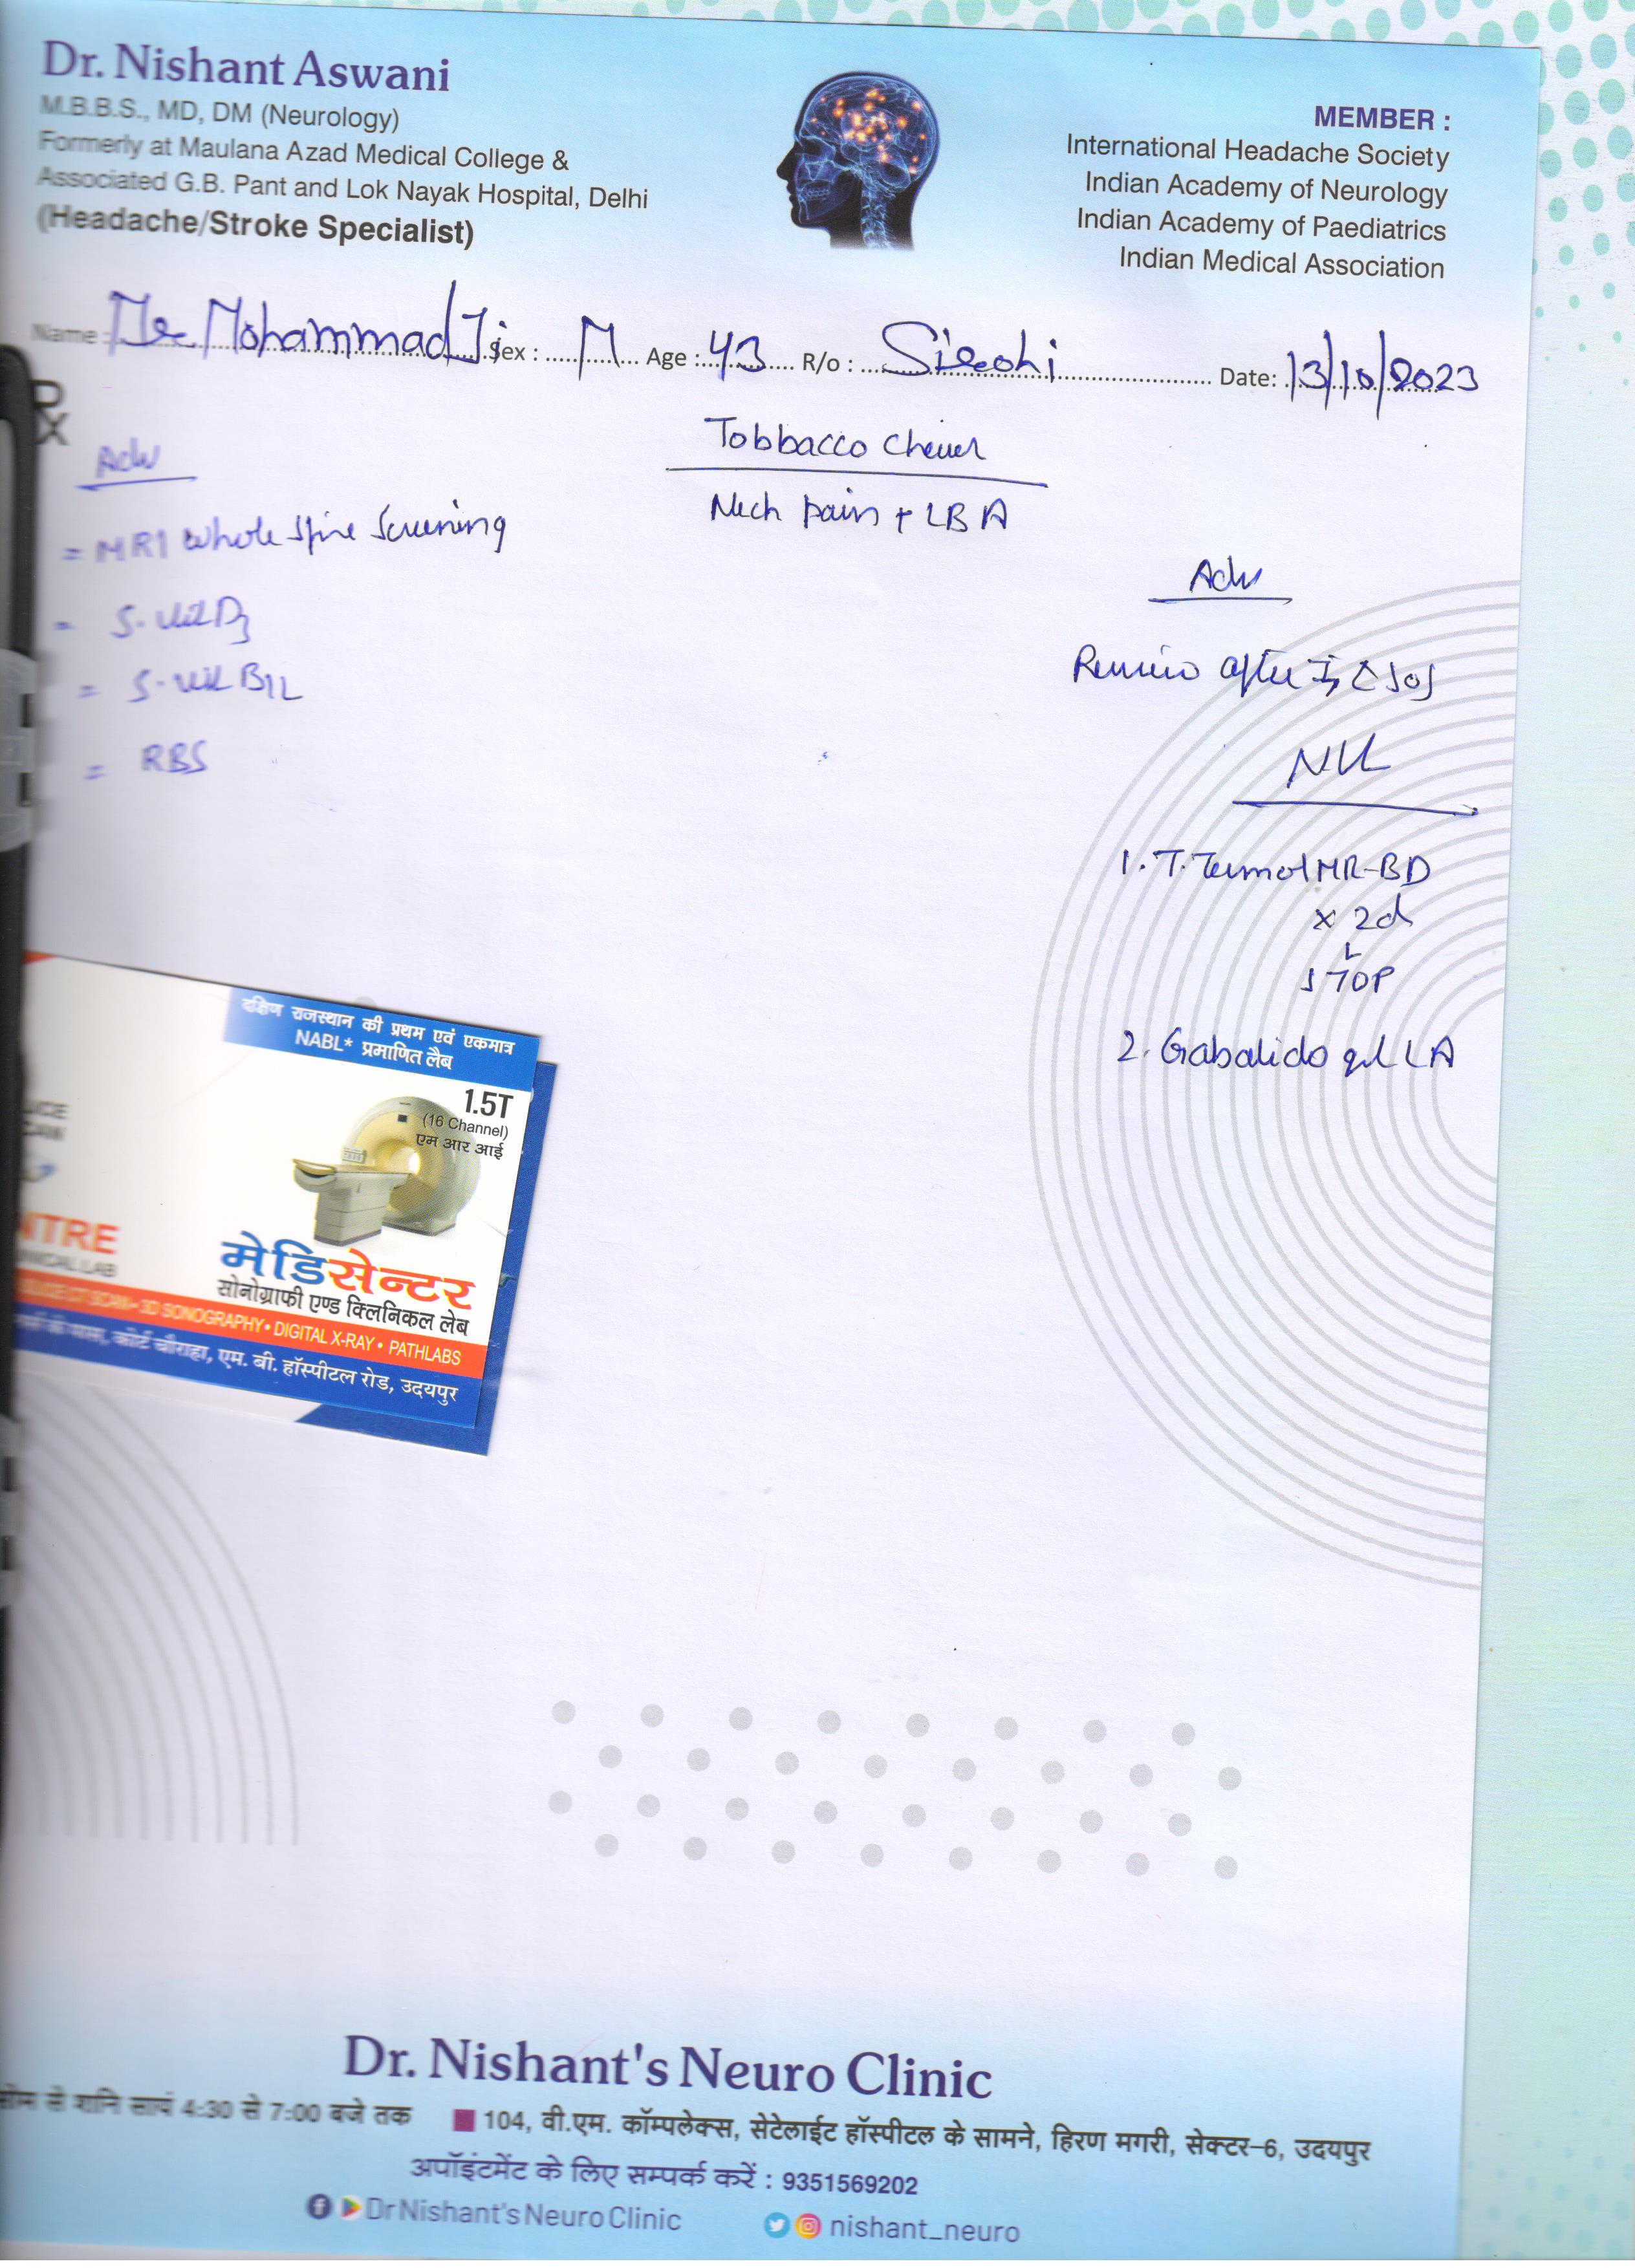 Dr. Nishant Aswani
M.B.B.S., MD, DM (Neurology)
Formerly at Maulana Azad Medical College &
Associated G.B. Pant and Lok Nayak Hospital, Delhi
(Headache/Stroke Specialist)
MEMBER :
International Headache Society
Indian Academy of Neurology
Indian Academy of Paediatrics
Indian Medical Association
Name : Mr Mohammad Ji Sex : M Age : 43 R/o : Sirohi Date: 13/10/2023
Rx
Tobbacco Chewer
Neck pain + LBA
Adv
= MRI Whole Spine Screening
= S. Vit D3
= S. Vit B12
= RBS
Adv
Review after SOS
1. T. MR-BD
x 2d
STOP
2. Gabalido gel LA
दक्षिण राजस्थान की प्रथम एवं एकमात्र
NABL* प्रमाणित लैब
1.5T
(16 Channel)
एम आर आई
NTRE
मेडिसेन्टर
सोनोग्राफी एण्ड क्लिनिकल लेब
3D SONOGRAPHY • DIGITAL X-RAY • PATHLABS
के पास, कोर्ट चौराहा, एम. बी. हॉस्पीटल रोड, उदयपुर
Dr. Nishant's Neuro Clinic
सोम से शनि सायं 4:30 से 7:00 बजे तक
104, वी.एम. कॉम्पलेक्स, सेटेलाईट हॉस्पीटल के सामने, हिरण मगरी, सेक्टर-6, उदयपुर
अपॉइंटमेंट के लिए सम्पर्क करें : 9351569202
Dr Nishant's Neuro Clinic
nishant_neuro